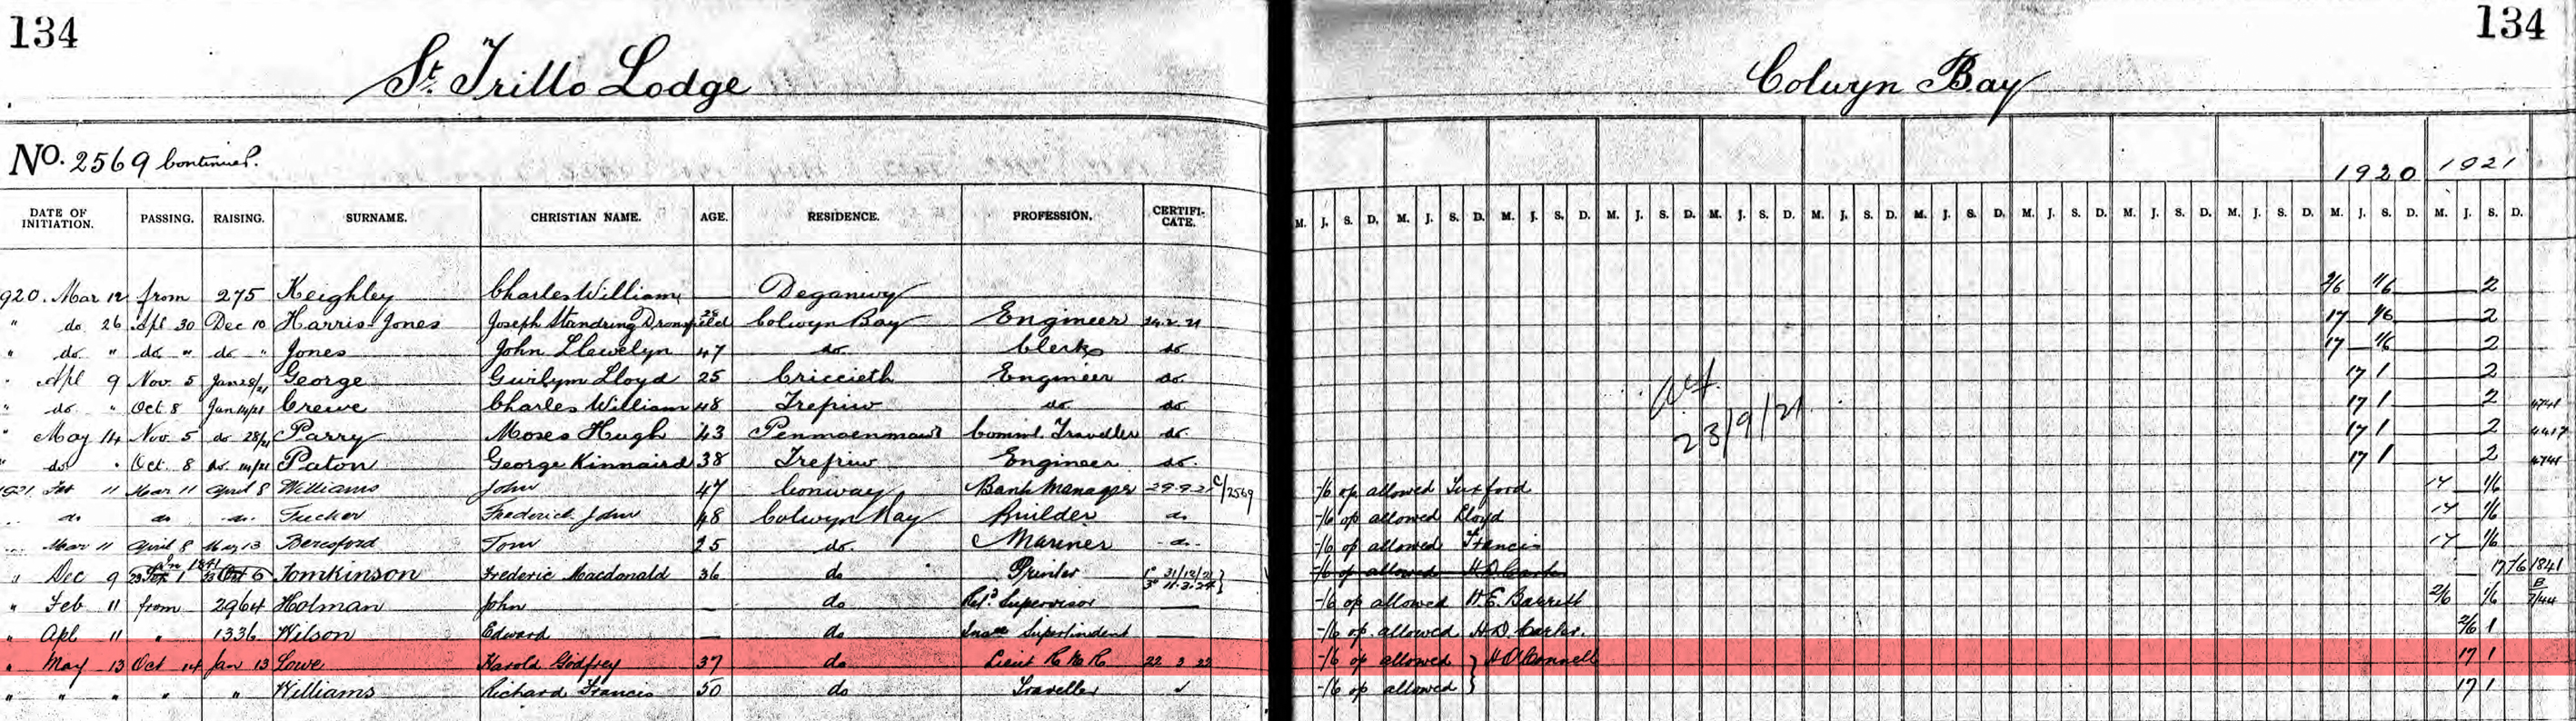 134 134
St. Trillo Lodge Colwyn Bay
No. 2569 Continued.
1920 1921
DATE OF INITIATION. PASSING. RAISING. SURNAME. CHRISTIAN NAME. AGE. RESIDENCE. PROFESSION. CERTIFI-CATE. M. J. S. D. M. J. S. D. M. J. S. D. M. J. S. D. M. J. S. D. M. J. S. D. M. J. S. D. M. J. S. D. M. J. S. D. M. J. S. D. M. J. S. D. M. J. S. D.
920. Mar 12 from 275 Keighley Charles William Deganwy 2/6 1/6 2
" do 26 Apl 30 Dec 10 Harris-Jones Joseph Standring Dronsfield 28 Colwyn Bay Engineer 24.2.21 17 1/6 2
" do " do " do " Jones John Llewelyn 47 do. Clerk do 17 1/6 2
" Apl 9 Nov. 5 Jan 28/21 George Gwilym Lloyd 25 Criccieth Engineer do. 17 1 2
" do " Oct 8 Jan 14/21 Crewe Charles William 48 Trefriw do. do 17 1 2 4741
" May 14 Nov 5 do 28/21 Parry Moses Hugh 43 Penmaenmawr Comml. Traveller do. 17 1 2 4417
" do " Oct. 8 do. 14/21 Paton George Kinnaird 38 Trefriw Engineer do. 17 1 2 4741
23/9/21
1921 Feb 11 Mar 11 April 8 Williams John 47 Conway Bank Manager 29.9.21 C/2569 -/6 op allowed Luxford 17 1/6
" do do do Tucker Frederick John 48 Colwyn Bay Builder do -/6 op allowed Lloyd 17 1/6
" Mar 11 April 8 May 13 Beresford Tom 25 do. Mariner do. -/6 op allowed Francis 17 1/6
" Dec 9 in 1841 Tomkinson Frederic Macdonald 36 do Printer 1° 31/12/21 3° 11.3.24 -/6 op allowed H.D. Carter 17/6 1841
" Feb 11 from 2964 Holman John — do Retd. Supervisor — -/6 op allowed H.E. Barritt 2/6 1/6
" Apl 11 " 1336 Wilson Edward — do Superintendent — -/6 op. allowed H.D. Carter. 2/6 1
" May 13 Oct 14 Jan 13 Lowe Harold Godfrey 37 do Lieut R N R 22 3 22 -/6 op allowed } H O'Connell 17 1
" " " " " Williams Richard Francis 50 do Traveller -/6 op allowed } 17 1